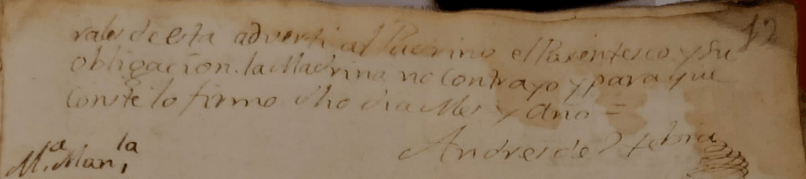 12
rales de esta adverti al Padrino el Parentesco, y su
obligacion. la Madrina no Contrajo y para que
Conste lo firmo dho dia Mes y Año =
Andres de
M.ª Man.la